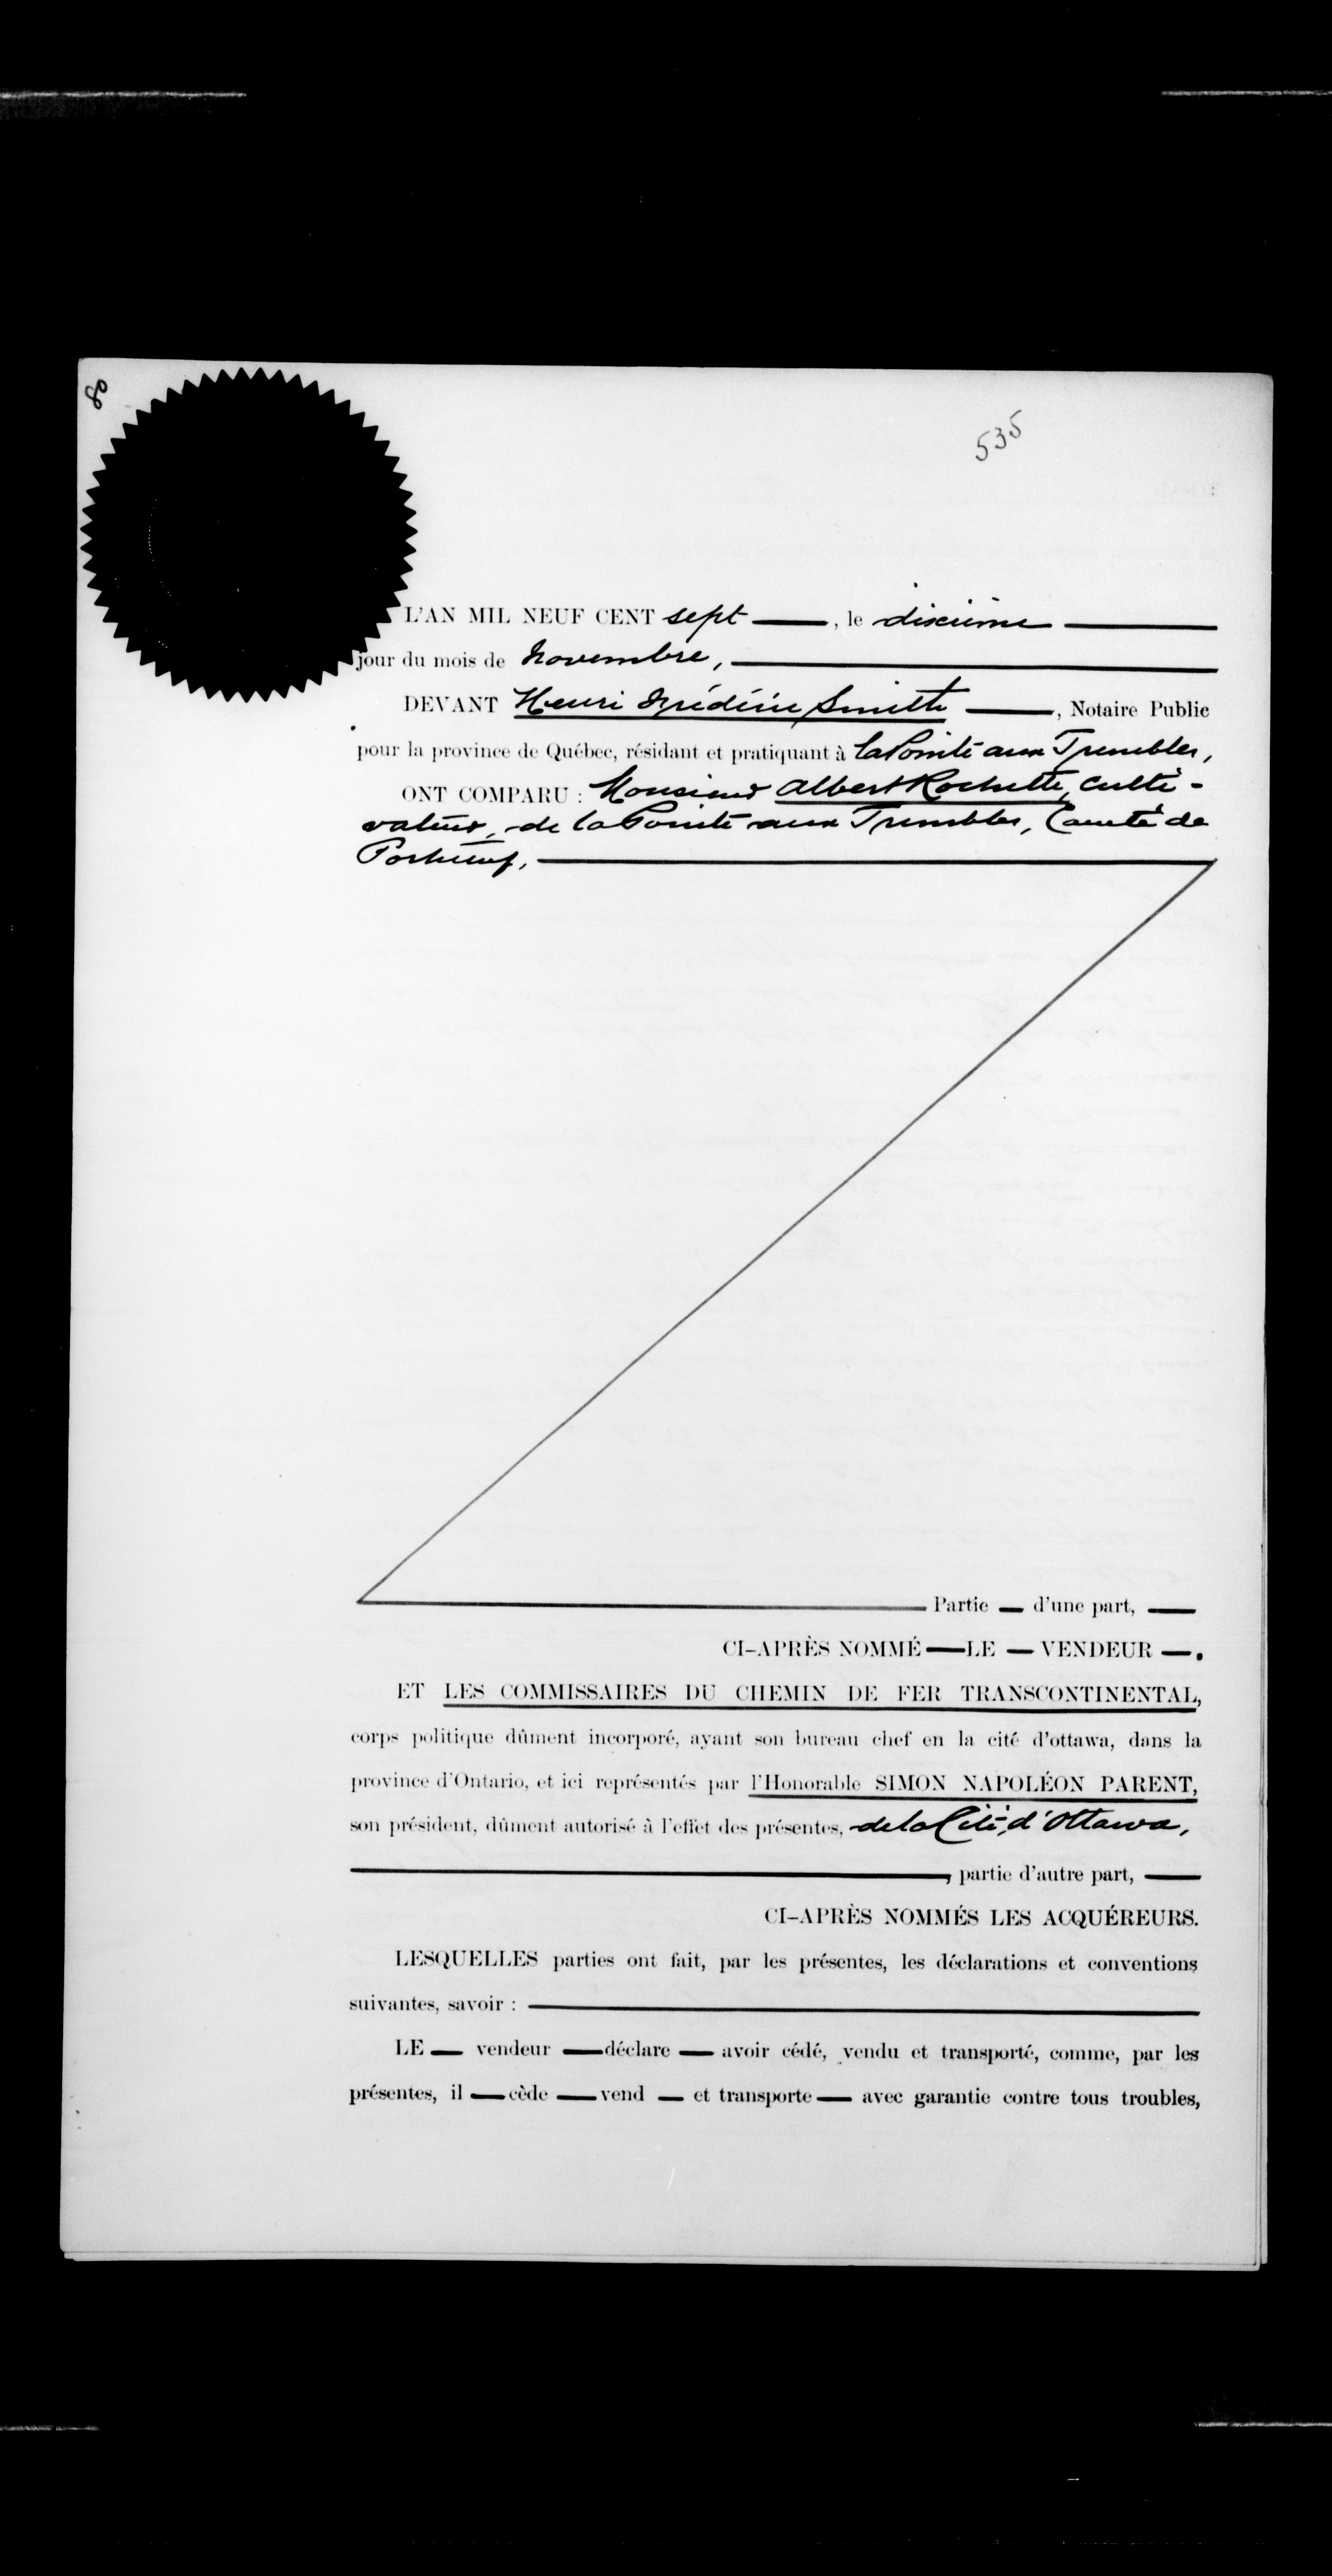 98
535
L'AN MIL NEUF CENT sept —, le dixième —
jour du mois de Novembre, —
DEVANT Henri Frédéric Smith —, Notaire Public
pour la province de Québec, résidant et pratiquant à la Pointe aux Trembles,
ONT COMPARU : Monsieur Albert Rochette, culti-
vateur, de la Pointe aux Trembles, Comté de
Portneuf, —
Partie — d'une part, —
CI-APRÈS NOMMÉ — LE — VENDEUR —.
ET LES COMMISSAIRES DU CHEMIN DE FER TRANSCONTINENTAL,
corps politique dûment incorporé, ayant son bureau chef en la cité d'ottawa, dans la
province d'Ontario, et ici représentés par l'Honorable SIMON NAPOLÉON PARENT,
son président, dûment autorisé à l'effet des présentes, de la Cité d'Ottawa,
—, partie d'autre part, —
CI-APRÈS NOMMÉS LES ACQUÉREURS.
LESQUELLES parties ont fait, par les présentes, les déclarations et conventions
suivantes, savoir : —
LE — vendeur — déclare — avoir cédé, vendu et transporté, comme, par les
présentes, il — cède — vend — et transporte — avec garantie contre tous troubles,